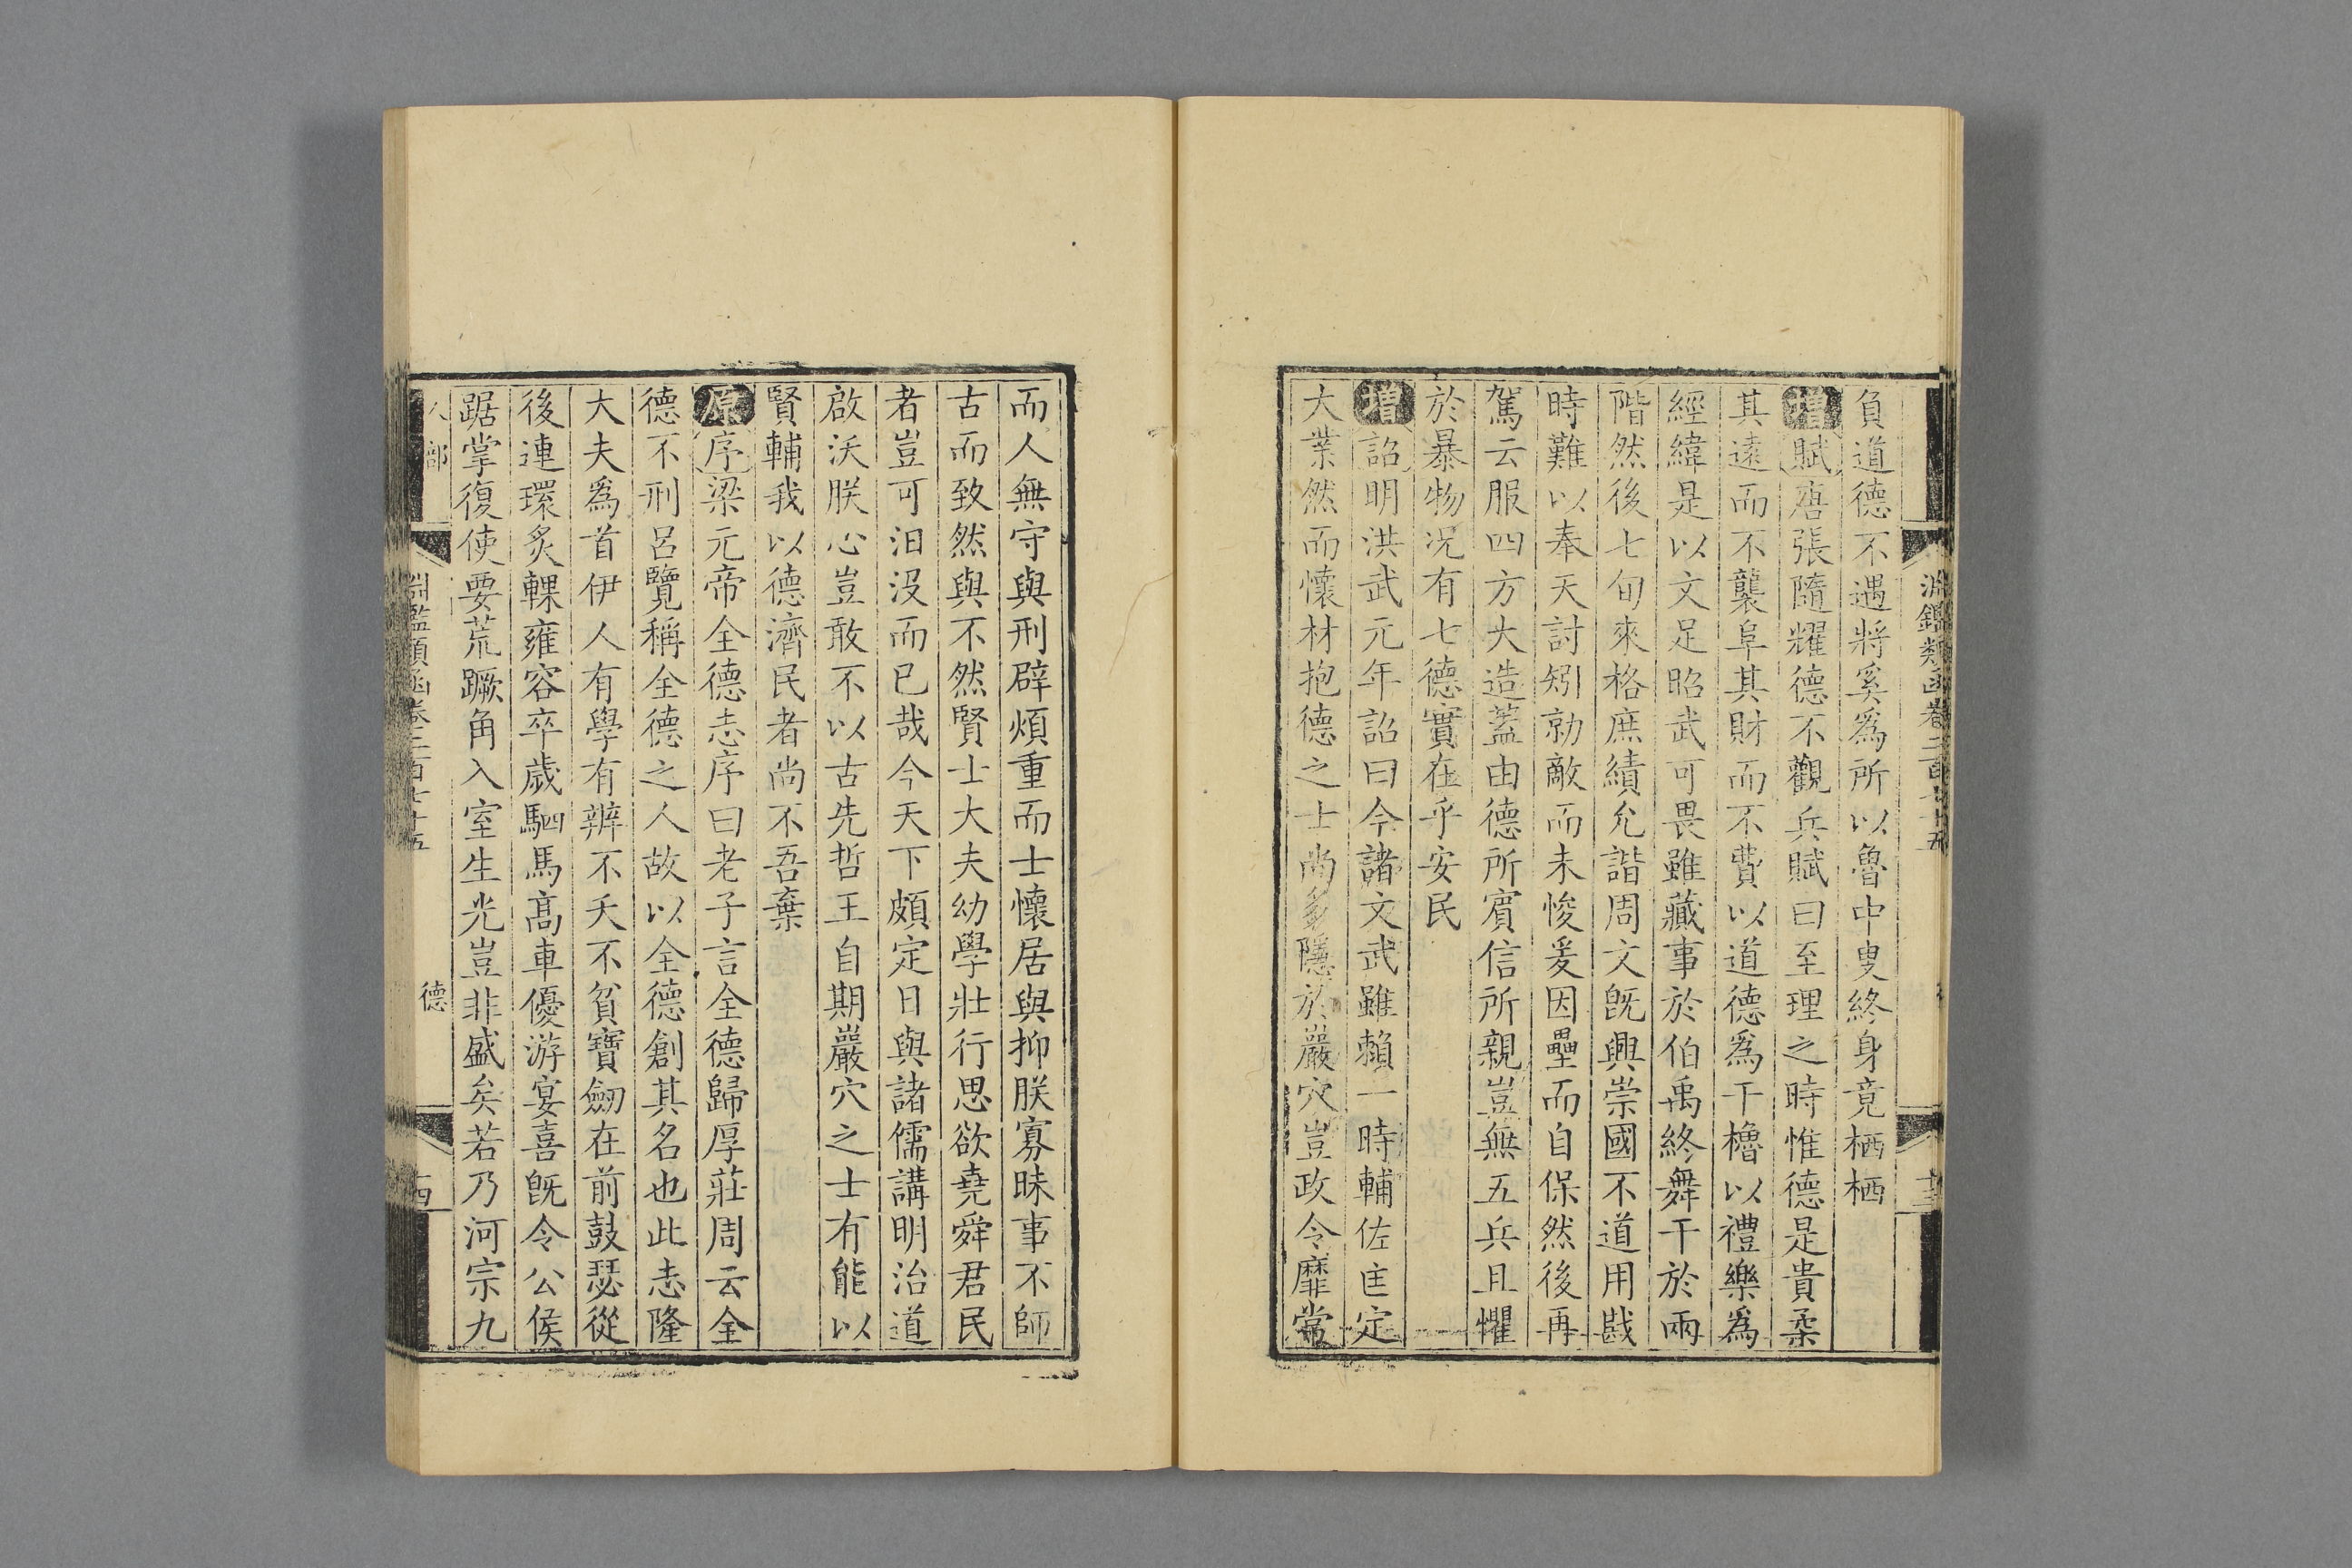 淵鑑類函卷二百七十五
十三
負道德不遇將奚爲所以魯中叟終身竟栖栖
增賦唐張隨耀德不觀兵賦曰至理之時惟德是貴柔
其遠而不襲阜其財而不費以道德爲干櫓以禮樂爲
經緯是以文足昭武可畏雖藏事於伯禹終舞干於兩
階然後七旬來格庶績允諧周文旣興崇國不道用戡
時難以奉天討矧勍敵而未悛爰因壘而自保然後再
駕云服四方大造蓋由德所賓信所親豈無五兵且懼
於暴物况有七德實在乎安民
增詔明洪武元年詔曰今諸文武雖賴一時輔佐匡定
大業然而懷材抱德之士尚多隱於巖穴豈政令靡常
而人無守與刑辟煩重而士懷居與抑朕寡昧事不師
古而致然與不然賢士大夫幼學壯行思欲堯舜君民
者豈可汩没而已哉今天下頗定日與諸儒講明治道
啟沃朕心豈敢不以古先哲王自期巖穴之士有能以
賢輔我以德濟民者尚不吾棄
原序梁元帝全德志序曰老子言全德歸厚莊周云全
德不刑呂覽稱全德之人故以全德創其名也此志隆
大夫爲首伊人有學有辨不夭不貧寶劒在前鼓瑟從
後連環炙輠雍容卒歲駟馬髙車優游宴喜旣令公侯
踞掌復使要荒蹶角入室生光豈非盛矣若乃河宗九
人部
淵鑑類函卷二百七十五
德
四